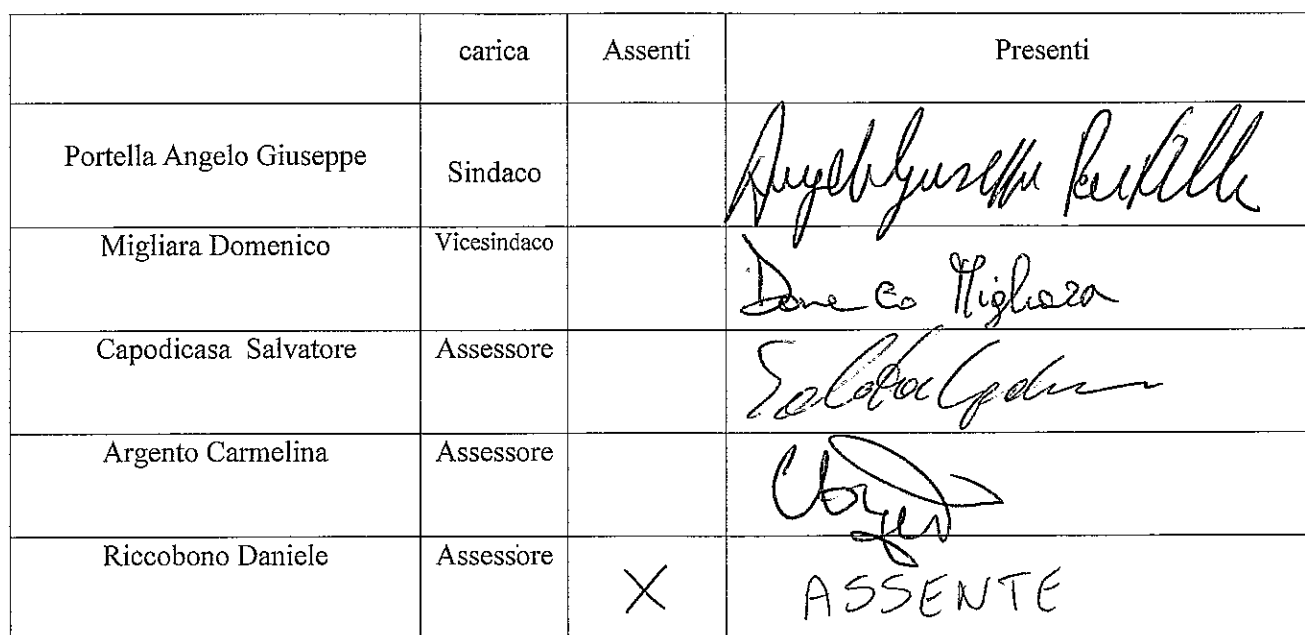 carica Assenti Presenti
Portella Angelo Giuseppe Sindaco Angelo Giuseppe Portella
Migliara Domenico Vicesindaco Domenico Migliara
Capodicasa Salvatore Assessore
Argento Carmelina Assessore
Riccobono Daniele Assessore X ASSENTE